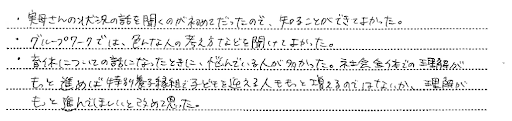 ・実母さんの状況の話を聞くのが初めてだったので、知ることができてよかった。
・グループワークでは、色んな人の考え方などを聞けてよかった。
・育休についての話になったときに、悩んでいる人が多かった。社会全体での理解が
もっと進めば特別養子縁組で子どもを迎える人ももっと増えるのではないか、理解が
もっと進んでほしいと改めて思った。